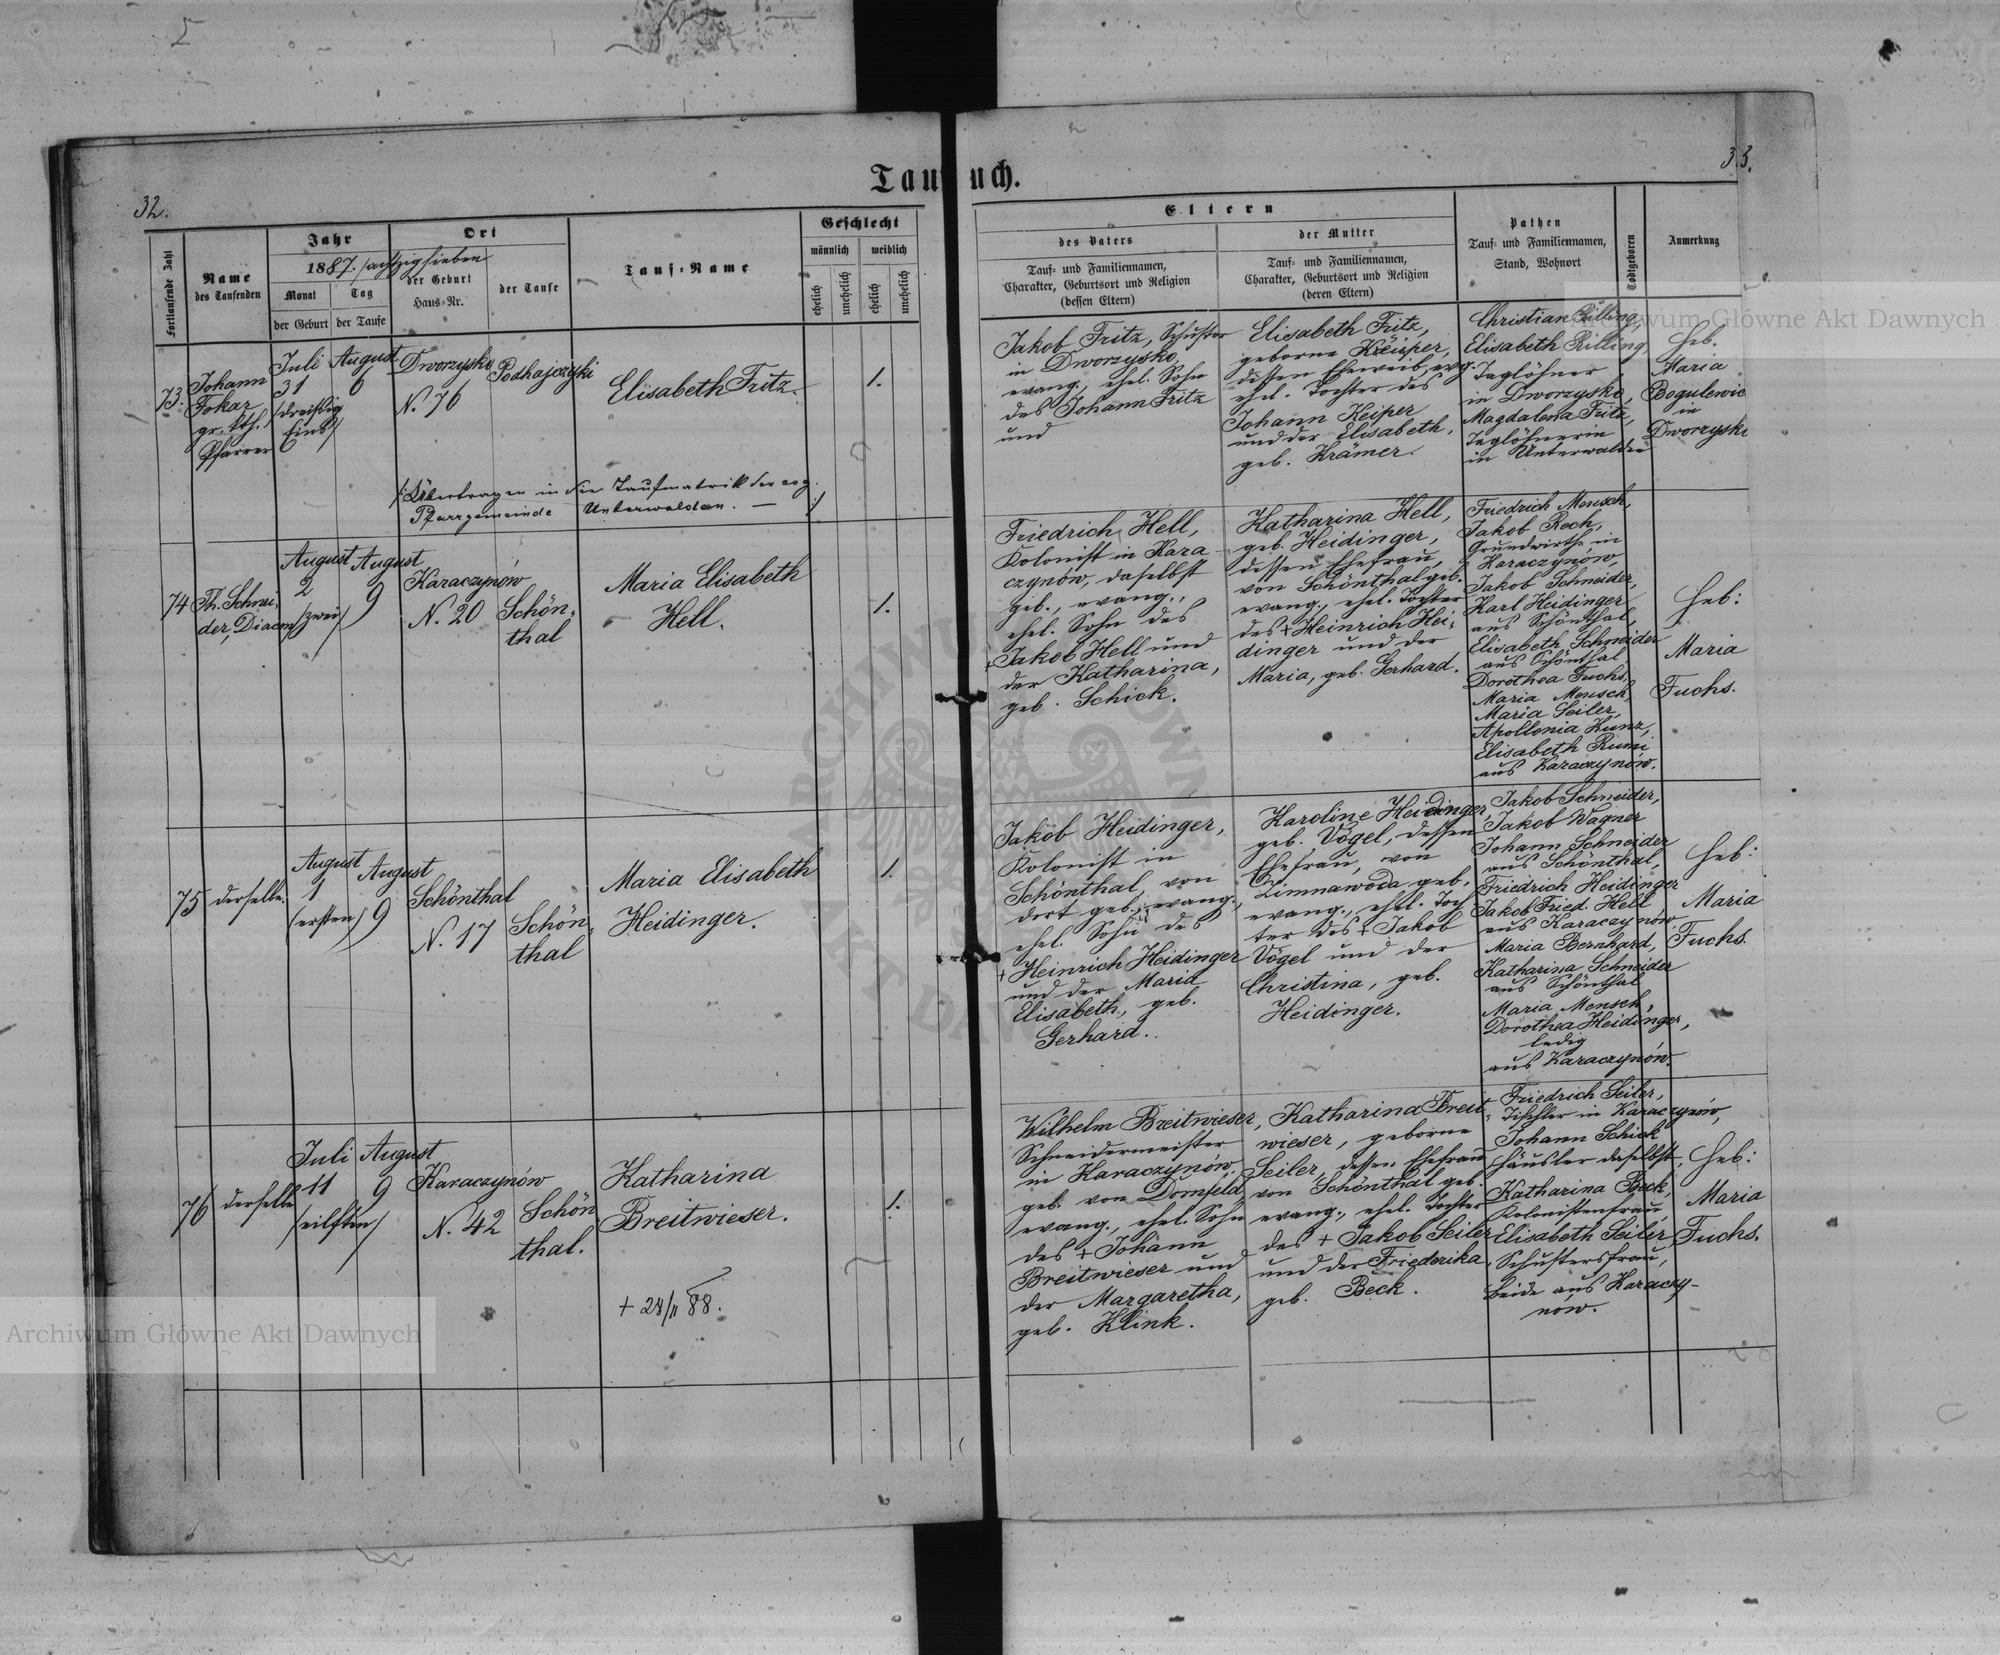 Taufbuch.
32.
33.
Fortlaufende Zahl
Name
des Taufenden
Jahr
1887. /achtzig sieben
Monat
Tag
der Geburt
der Taufe
Ort
der Geburt
Haus-Nr.
der Taufe
Tauf-Name
Geschlecht
männlich
weiblich
ehelich
unehelich
ehelich
unehelich
Eltern
des Vaters
Tauf- und Familiennamen,
Charakter, Geburtsort und Religion
(dessen Eltern)
der Mutter
Tauf- und Familiennamen,
Charakter, Geburtsort und Religion
(deren Eltern)
Pathen
Tauf- und Familiennamen,
Stand, Wohnort
Todtgeboren
Anmerkung
73.
Johann
Tokar
gr. kth.
Pfarrer
Juli
31
/dreißig
Eins/
August
6
Dworzysko
N. 76
Podhajczyki
Elisabeth Fritz.
1.
Jakob Fritz, Schuster
in Dworzysko,
evang., ehel. Sohn
des Johann Fritz
und
Elisabeth Fritz,
geborne Keiper,
dessen Eheweib, evg.
ehel. Tochter des
Johann Keiper
und der Elisabeth,
geb. Krämer.
Christian Rilling,
Elisabeth Rilling,
Taglöhner
in Dworzysko,
Magdalena Fritz,
Taglöhnerin
in Unterwalden
Heb.
Maria
Bogulewic
in
Dworzysko
/:Übertragen in die Taufmatrik der evg.
Pfarrgemeinde Unterwalden. — :/
74
Th. Schnei-
der, Diacon
August
2
/zwei/
August
9
Karaczynów
N. 20
Schön-
thal
Maria Elisabeth
Hell.
1.
Friedrich Hell,
Kolonist in Kara-
czynów, daselbst
geb., evang.,
ehel. Sohn des
Jakob Hell und
der Katharina,
geb. Schick.
Katharina Hell,
geb. Heidinger,
dessen Ehefrau,
von Schönthal geb.
evang., ehel. Tochter
des + Heinrich Hei-
dinger und der
Maria, geb. Gerhard.
Friedrich Mensch,
Jakob Rech,
Grundwirthe in
Karaczynów,
Jakob Schneider,
Karl Heidinger
aus Schönthal,
Elisabeth Schneider
aus Schönthal
Dorothea Fuchs,
Maria Mensch,
Maria Seiler,
Apollonia Kunz,
Elisabeth Rumi
aus Karaczynów.
Heb:
Maria
Fuchs.
75
derselbe.
August
1
/ersten/
August
9
Schönthal
N. 17
Schön-
thal
Maria Elisabeth
Heidinger.
1.
Jakob Heidinger,
Kolonist in
Schönthal, von
dort geb., evang.,
ehel. Sohn des
+ Heinrich Heidinger
und der Maria
Elisabeth, geb.
Gerhard.
Karoline Heidinger,
geb. Vögel, dessen
Ehefrau, von
Zimnawoda geb.
evang., ehel. Toch
ter des + Jakob
Vögel und der
Christina, geb.
Heidinger.
Jakob Schneider,
Jakob Wagner
Johann Schneider
aus Schönthal,
Friedrich Heidinger
Jakob Fried. Hell
aus Karaczynów
Maria Bernhard,
Katharina Schneider
aus Schönthal
Maria Mensch,
Dorothea Heidinger,
ledig
aus Karaczynów.
Heb:
Maria
Fuchs.
76
derselbe
Juli
11
/eilften/
August
9
Karaczynów
N. 42
Schön
thal.
Katharina
Breitwieser.
+ 28/11 88.
1.
Wilhelm Breitwieser,
Schneidermeister
in Karaczynów,
geb. von Dornfeld,
evang., ehel. Sohn
des + Johann
Breitwieser und
der Margaretha,
geb. Klink.
Katharina Breit-
wieser, geborne
Seiler, dessen Ehefrau
von Schönthal geb.
evang., ehel. Tochter
des + Jakob Seiler
und der Friederika,
geb. Beck.
Friedrich Seiler,
Tischler in Karaczynów,
Johann Schick
Häusler daselbst,
Katharina Beck,
Kolonistenfrau,
Elisabeth Seiler,
Schustersfrau,
beide aus Karaczy-
nów.
Heb:
Maria
Fuchs.
Archiwum Główne Akt Dawnych
Archiwum Główne Akt Dawnych